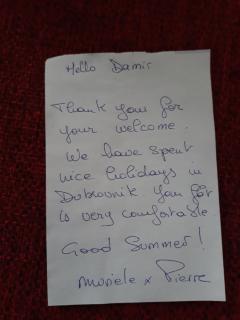 Hello Damir
Thank you for
your welcome.
We have spent
nice holidays in
Dubrovnik your flat
is very comfortable
Good Summer!
Muriele x Pierre